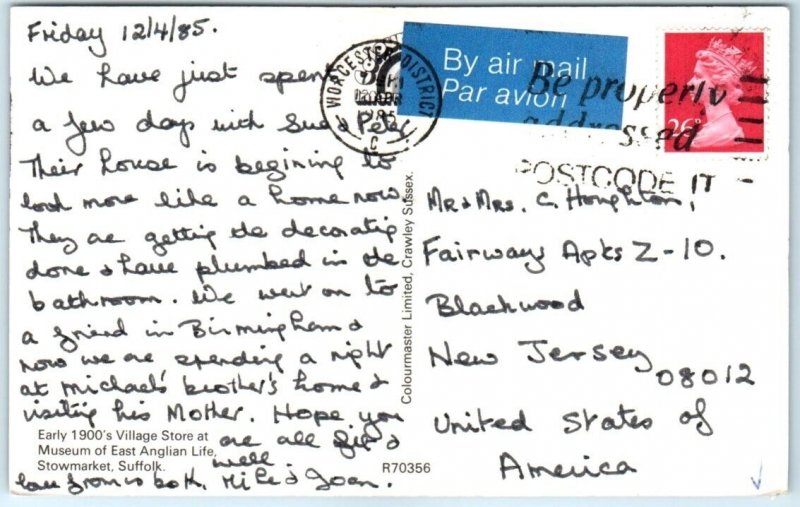 Friday 12/4/85.
We have just spent
a few days with Sue & Peter
Their house is begining to
look more like a home now.
They are getting the decorating
done & have plumbed in the
bathroom. We went on to
a friend in Birmingham &
now we are spending a night
at Michael's brother's home &
visiting his Mother. Hope you
are all fit &
well.
love from us both, Mike & Joan.
Early 1900's Village Store at
Museum of East Anglian Life,
Stowmarket, Suffolk.
R70356
Colourmaster Limited, Crawley Sussex.
WORCESTER DISTRICT
APR
C
By air mail
Par avion
Be properly
addressed
POSTCODE IT
26P
Mr & Mrs. C. Houghton,
Fairways Apts Z-10.
Blackwood
New Jersey
08012
United States of
America